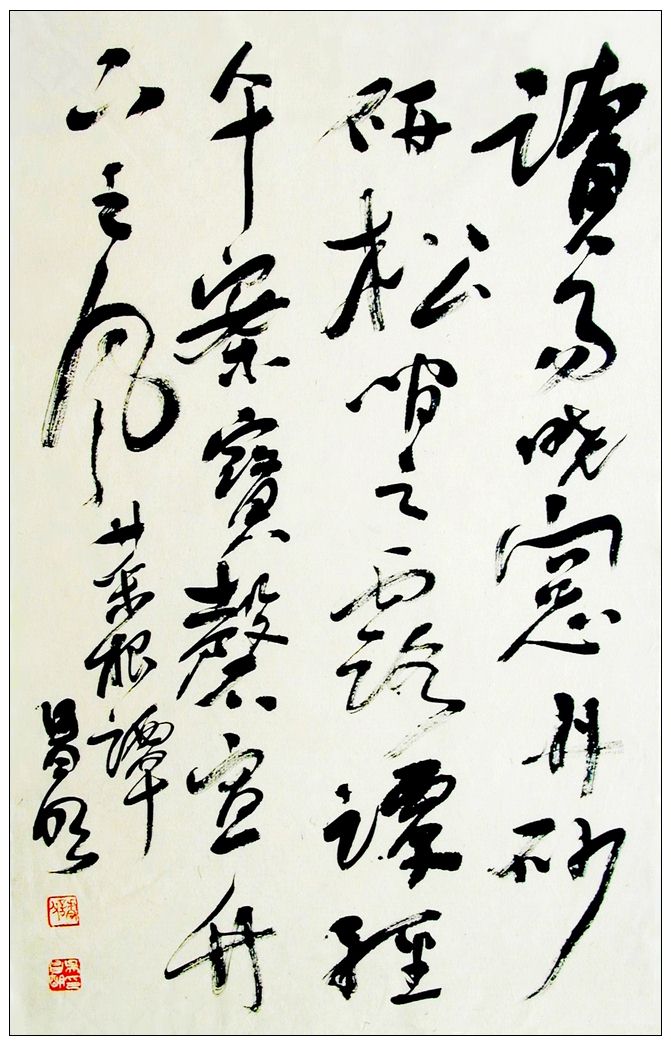 讀易曉窻丹砂
研松間之露譚經
午案寶磬宣竹
下之風菜根譚
昌明